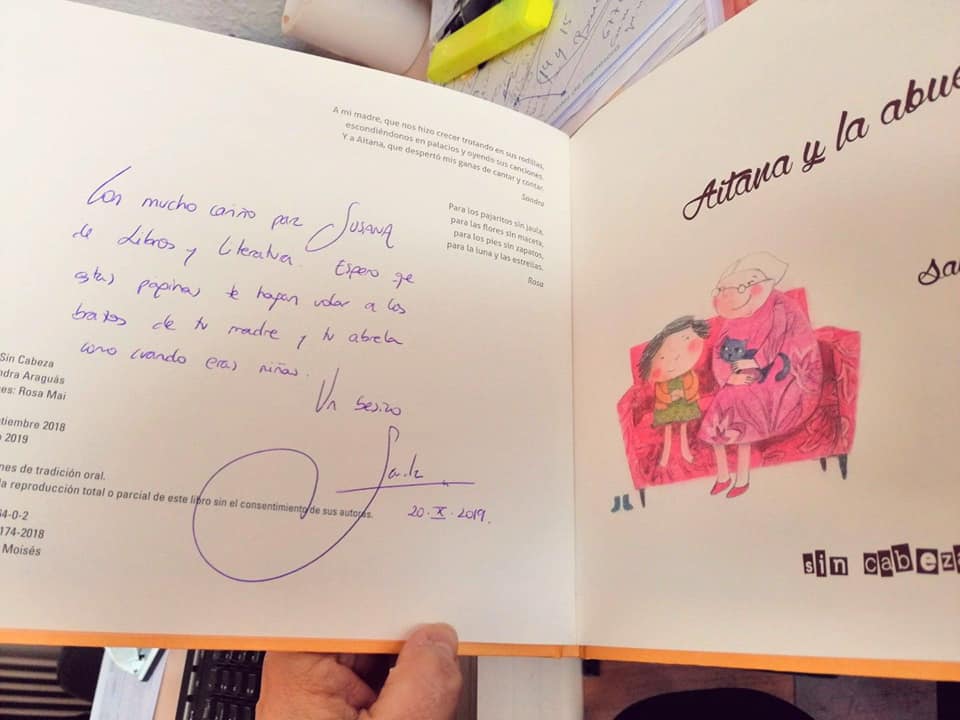 A mi madre, que nos hizo crecer trotando en sus rodillas,
escondiéndonos en palacios y oyendo sus canciones.
Y a Aitana, que despertó mis ganas de cantar y contar.
Sandra
Para los pajaritos sin jaula,
para las flores sin maceta,
para los pies sin zapatos,
para la luna y las estrellas.
Rosa
Con mucho cariño para SUSANA
de Libros y Literatura. Espero que
estas páginas te hagan volar a los
brazos de tu madre y tu abuela
como cuando eras niña.
Un besizo
20.X.2019.
Sin Cabeza
ndra Araguás
es: Rosa Mai
tiembre 2018
o 2019
nes de tradición oral.
la reproducción total o parcial de este libro sin el consentimiento de sus autores.
64-0-2
174-2018
Moisés
Aitana y la abue
sa
sin cabeza